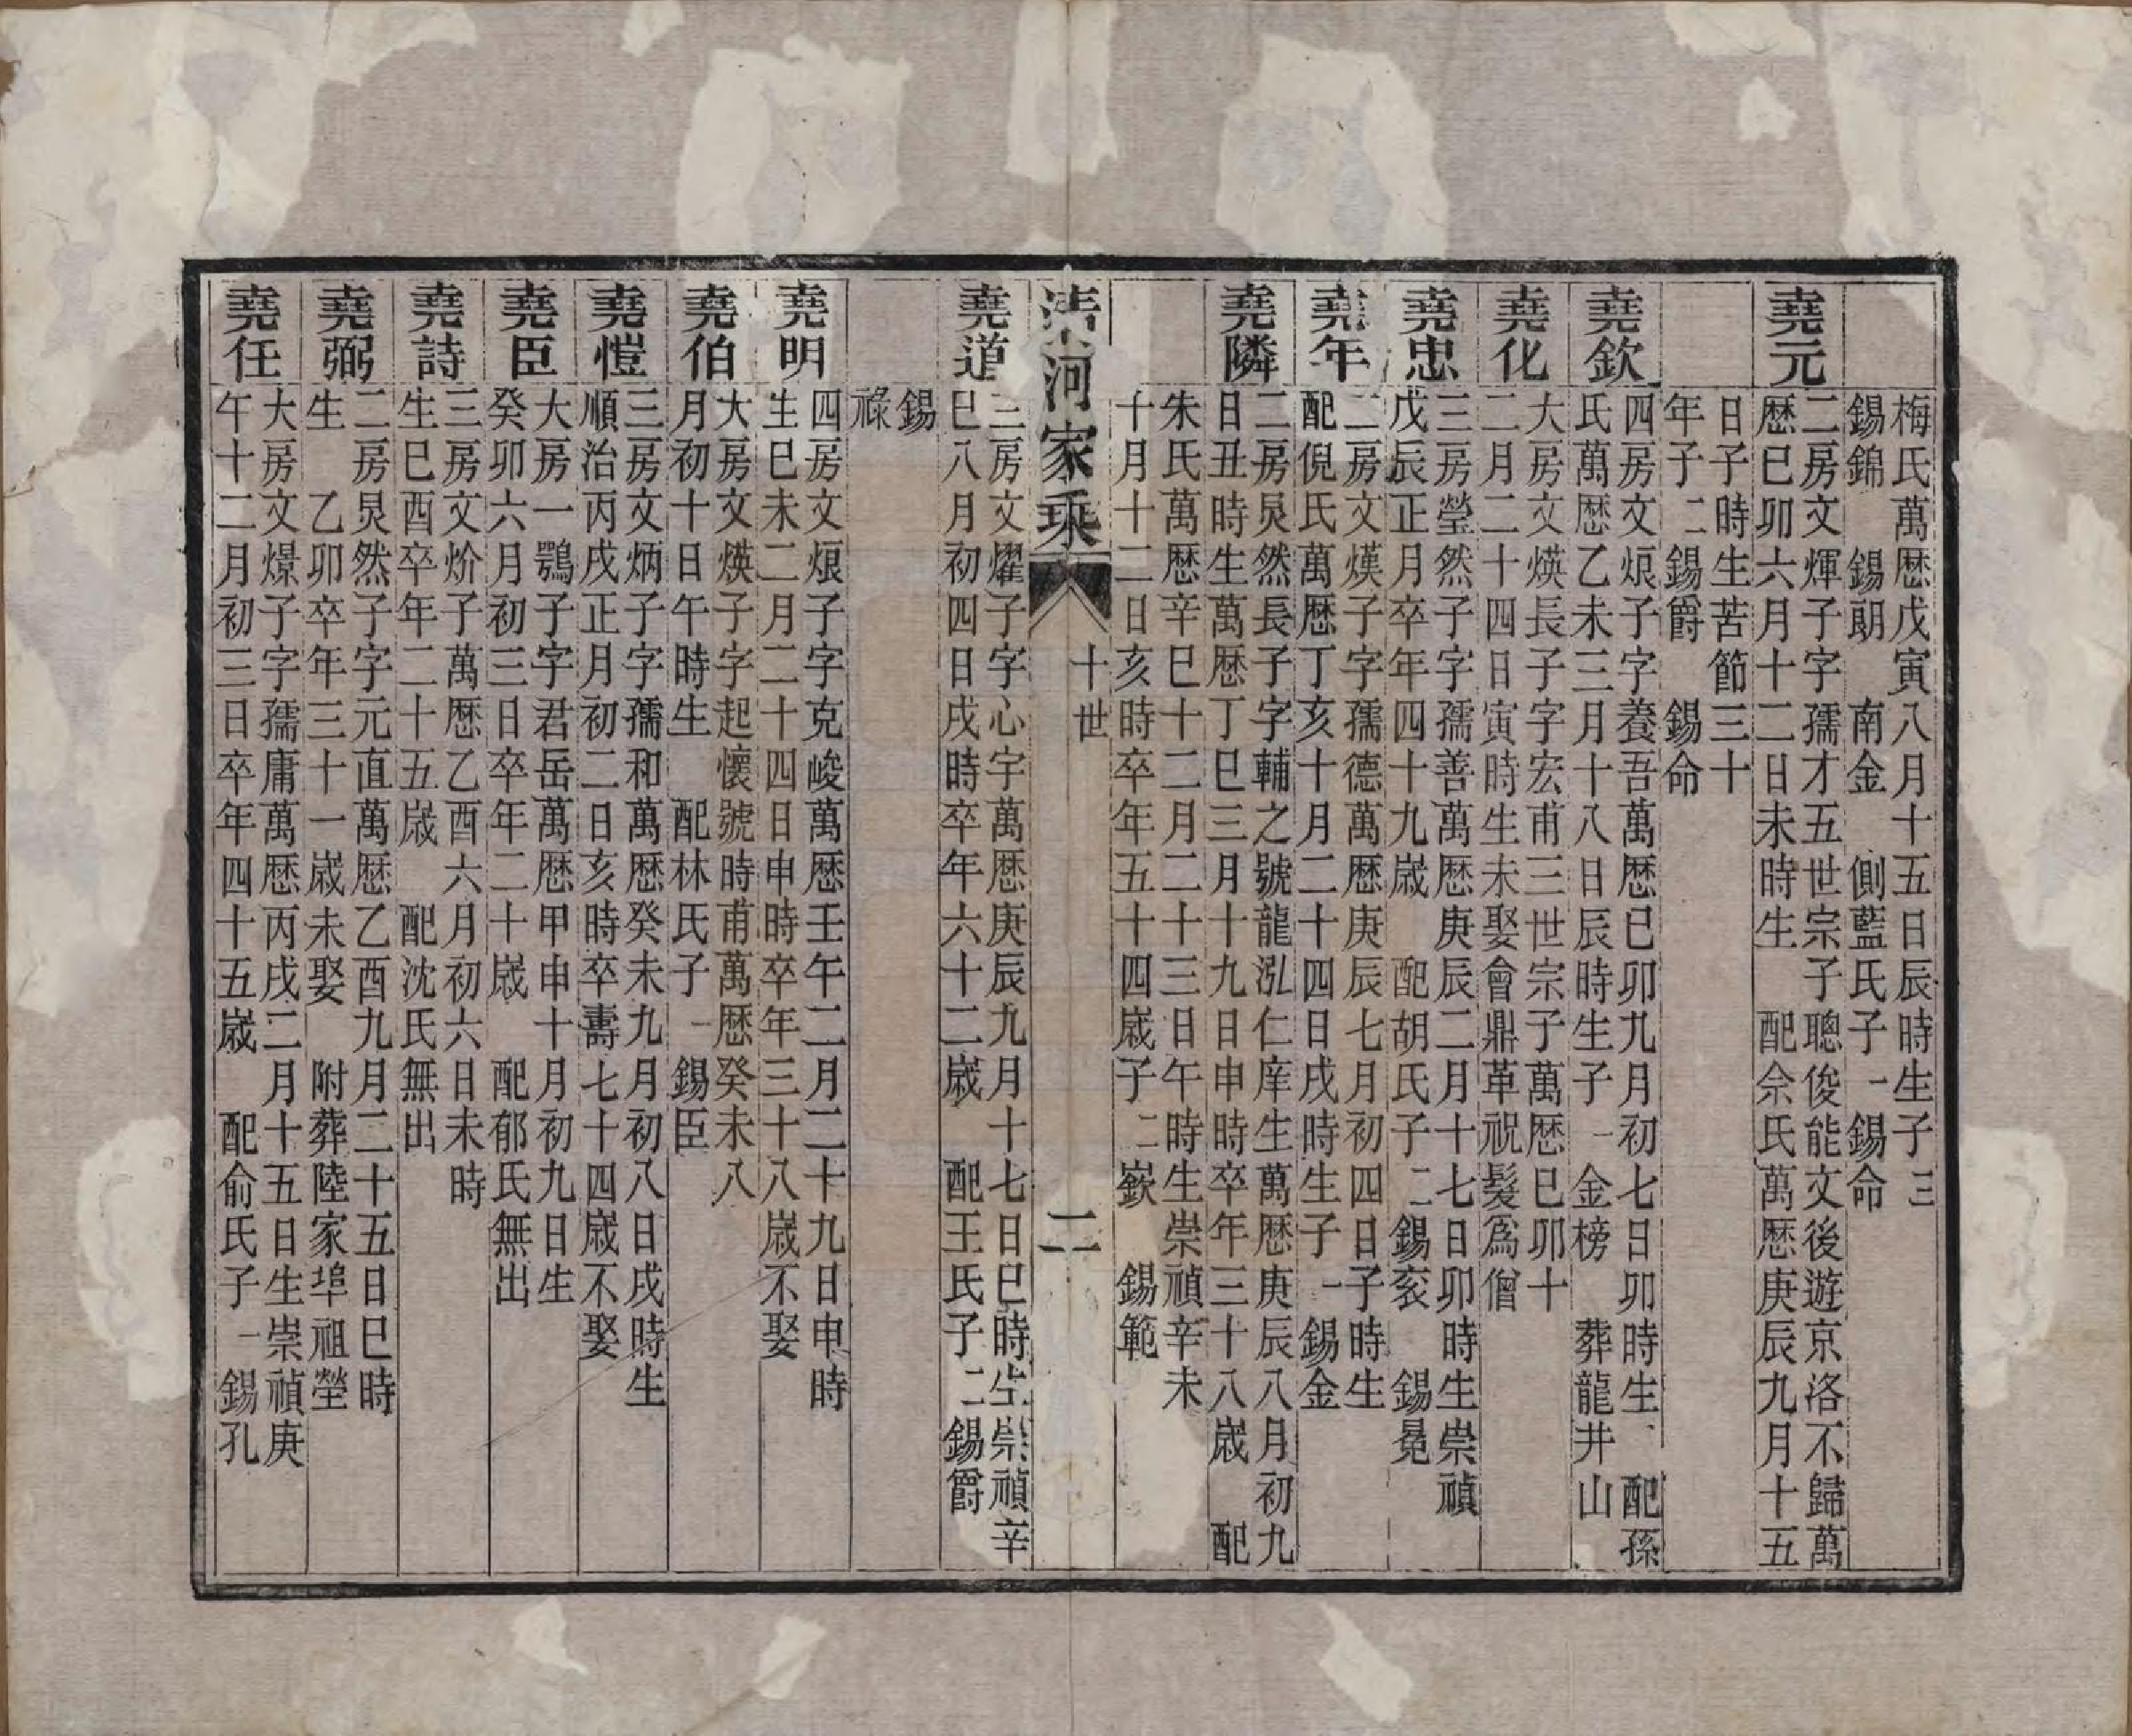 梅氏萬歷戊寅八月十五日辰時生子三
錫錦　錫朗　南金　側藍氏子一錫命
堯元
二房文煇子字孺才五世宗子聰俊能文後遊京洛不歸萬
歷巳卯六月十二日未時生　配佘氏萬歷庚辰九月十五
日子時生苦節三十
年子二錫爵　錫命
堯欽
四房文烺子字養吾萬歷巳卯九月初七日卯時生　配孫
氏萬歷乙未三月十八日辰時生子一金榜　葬龍井山
堯化
大房文煐長子字宏甫三世宗子萬歷巳卯十
二月二十四日寅時生未娶會鼎革祝髮爲僧
堯忠
三房瑩然子字孺善萬歷庚辰二月十七日卯時生崇禎
戊辰正月卒年四十九歲　配胡氏子二錫衮　錫冕
堯年
二房文熯子字孺德萬歷庚辰七月初四日子時生
配倪氏萬歷丁亥十月二十四日戌時生子一錫金
堯隣
二房炅然長子字輔之號龍泓仁庠生萬歷庚辰八月初九
日丑時生萬歷丁巳三月十九日申時卒年三十八歲　配
朱氏萬歷辛巳十二月二十三日午時生崇禎辛未
十月十二日亥時卒年五十四歲子二嶔　錫範
清河家乘
十世
二
堯道
三房文燿子字心宇萬歷庚辰九月十七日巳時生崇禎辛
巳八月初四日戌時卒年六十二歲　配王氏子二錫爵
錫
祿
堯明
四房文烺子字克峻萬歷壬午二月二十九日申時
生巳未二月二十四日申時卒年三十八歲不娶
堯伯
大房文煐子字起懷號時甫萬歷癸未八
月初十日午時生　配林氏子一錫臣
堯愷
三房文炳子字孺和萬歷癸未九月初八日戌時生
順治丙戌正月初二日亥時卒壽七十四歲不娶
堯臣
大房一鶚子字君岳萬歷甲申十月初九日生
癸卯六月初三日卒年二十歲　配郁氏無出
堯詩
三房文炌子萬歷乙酉六月初六日未時
生巳酉卒年二十五歲　配沈氏無出
堯弼
二房炅然子字元直萬歷乙酉九月二十五日巳時
生　乙卯卒年三十一歲未娶　附葬陸家埠祖塋
堯任
大房文燝子字孺庸萬歷丙戌二月十五日生崇禎庚
午十二月初三日卒年四十五歲　配俞氏子一錫孔